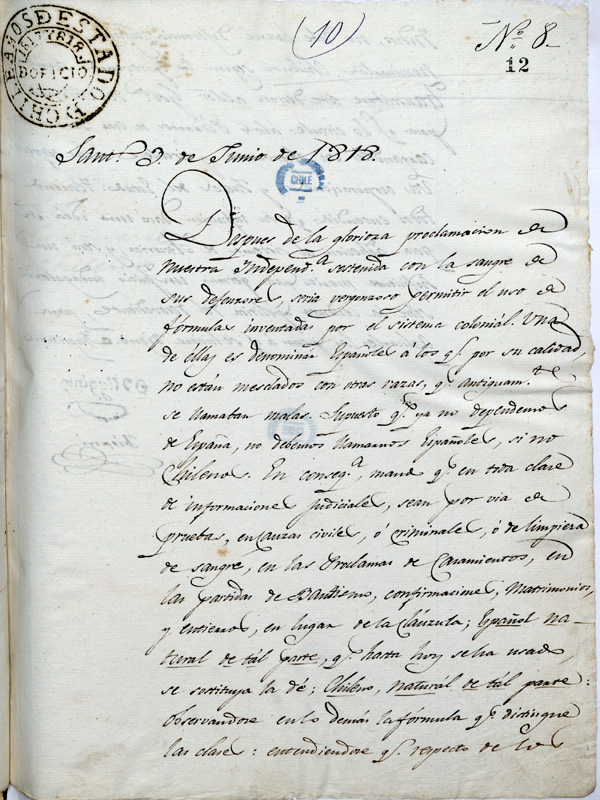 (10)
Nº 8.
12
CHILE AÑOS DE ESTADO D
D OFICIO
CHILE
Sant.º 3. de Junio de 1818.
Despues de la glorioza proclamacion de
nuestra Independ.ª sostenida con la sangre de
sus defensores, seria vergonzoso permitir el uso de
fórmulas inventadas por el sistema colonial. Una
de ellas es denominar Españoles á los q.e por su calidad,
no están mesclados con otras razas, q.e antiguam.te
se llamaban malas. Supuesto q.e ya no dependemos
de España, no debemos llamarnos Españoles, si no
Chilenos. En conseq.ª, mando q.e en toda clase
de informaciones judiciales, sean por via de
pruebas, en Cauzas civiles, ó criminales, ó de limpieza
de sangre, en las Proclamas de Casamientos, en
las partidas de Bautismo, confirmaciones, Matrimonios,
y entierros, en lugar de la Cláuzula; Español na-
tural de tál parte, q.e hasta hoy se ha usado,
se sostituya la dé; Chileno, naturál de tál parte:
Observandose en lo demás la fórmula q.e distingue
las clases: entendiendose q.e respecto de los